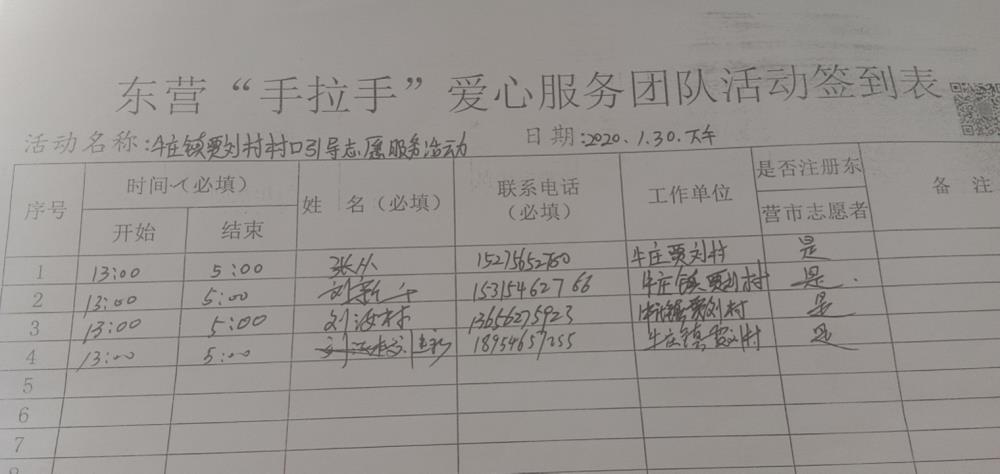 东营“手拉手”爱心服务团队活动签到表
活动名称:牛庄镇贾刘村村口引导志愿服务活动 日期:2020.1.30.下午
序号 时间(必填) 姓 名(必填) 联系电话(必填) 工作单位 是否注册东营市志愿者 备 注
开始 结束
1 13:00 5:00 15275652760 牛庄贾刘村 是
2 13:00 5:00 刘新 15315462766 牛庄镇贾刘村 是
3 13:00 5:00 刘海村 13656275923 牛庄镇贾刘村 是
4 13:00 5:00 18954657255 牛庄镇贾刘村 是
5
6
7